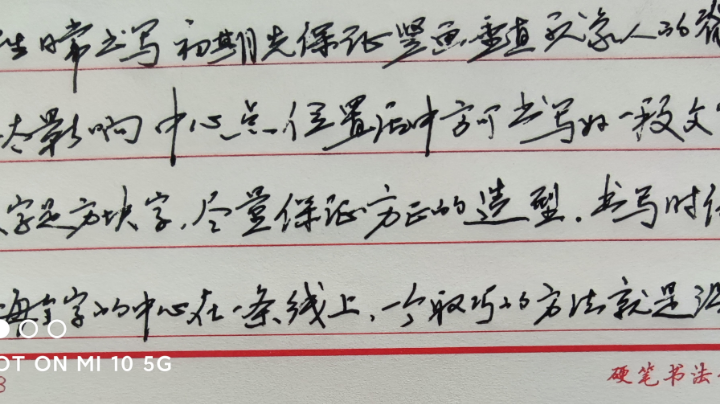 日常书写初期先保证竖画垂直就像人的脊
影响中心点位置居中方可书写好一段文
字是方块字,尽量保证方正的造型.书写时
每个字的中心在一条线上,一个取巧的方法就是
SHOT ON MI 10 5G
8
硬笔书法